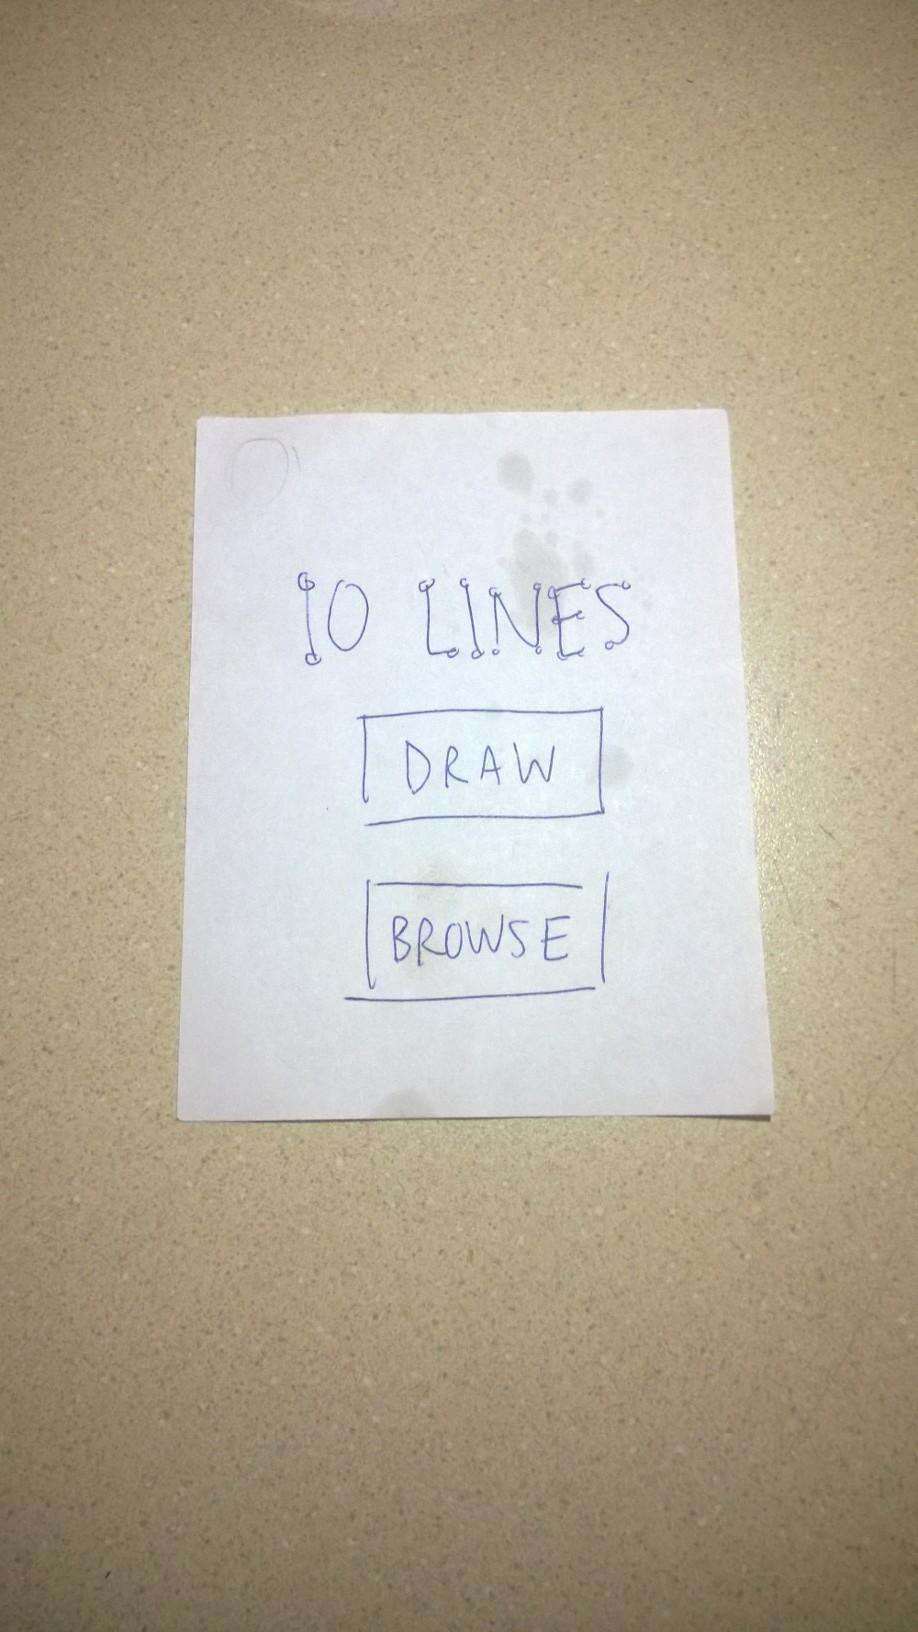 10 LINES
DRAW
BROWSE